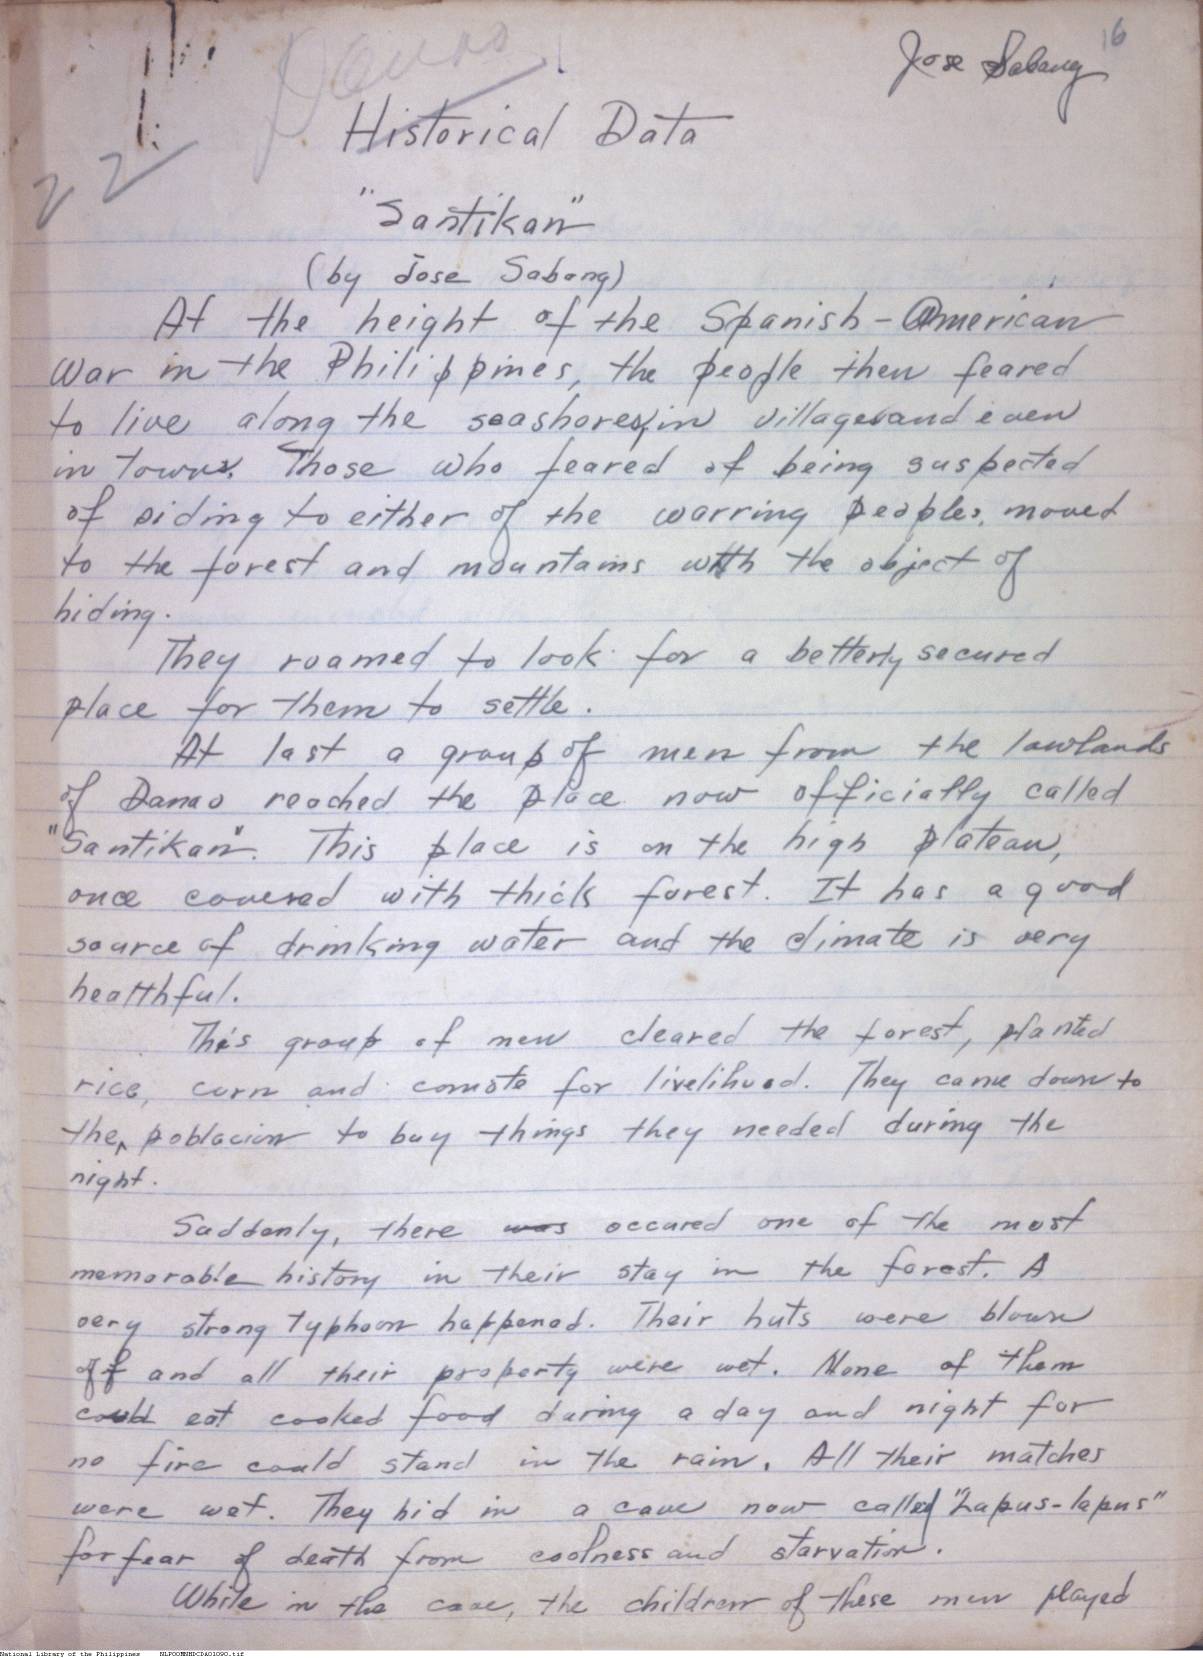 16
Jose Sabang
Danao
22
Historical Data
"Santikan"
(by Jose Sabang)
At the height of the Spanish-American
War in the Philippines, the people then feared
to live along the seashores, in villages and even
in towns. Those who feared of being suspected
of siding to either of the warring peoples, moved
to the forest and mountains with the object of
hiding.
They roamed to look for a betterly secured
place for them to settle.
At last a group of men from the lowlands
of Danao reached the place now officially called
"Santikan". This place is on the high plateau,
once covered with thick forest. It has a good
source of drinking water and the climate is very
healthful.
This group of men cleared the forest, planted
rice, corn and camote for livelihood. They came down to
the poblacion to buy things they needed during the
night.
Suddenly, there was occured one of the most
memorable history in their stay in the forest. A
very strong typhoon happened. Their huts were blown
off and all their property were wet. None of them
could eat cooked food during a day and night for
no fire could stand in the rain. All their matches
were wet. They hid in a cave now called "Lapus-lapus"
for fear of death from coolness and starvation.
While in the cave, the children of these men played
National Library of the Philippines NLPOOMNHDCDA01090.tif